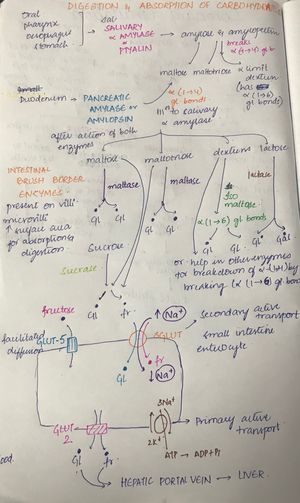 DIGESTION & ABSORPTION OF CARBOHYD
Oral
pharynx
oesophagus
stomach
SALIVARY
α AMYLASE
or
PTYALIN
amylose & amylopectin
breaks
α (1→4) gl b
maltose maltotriose α limit
dextrin
(has
α (1→6)
gl bonds)
Duodenum → PANCREATIC
AMYLASE or
AMYLOPSIN
α (1→4)
gl bonds
to salivary
α amylase
after action of both
enzymes
maltose maltotriose dextrins lactose
INTESTINAL
BRUSH BORDER
ENZYMES -
present on villi
microvilli
↑ surface area
for absorption &
digestion.
maltase
maltase
iso
maltase
lactase
Gl Gl
Gl Gl
α(1→6) gl bonds
Gl Gl Gl Gal
Sucrose
or help in other enzymes
for breakdown of α by
breaking (α (1→6) gl bon
sucrase
Gl fr
fructose
↑ Na+
Secondary active
transport
facilitated
diffusion
GLUT-5
SGLUT
small intestine
enterocyte
Gl
fr
↓ Na+
GLUT
2
3Na+
2K+
Primary active
transport
Gl fr
ATP → ADP+Pi
HEPATIC PORTAL VEIN → LIVER